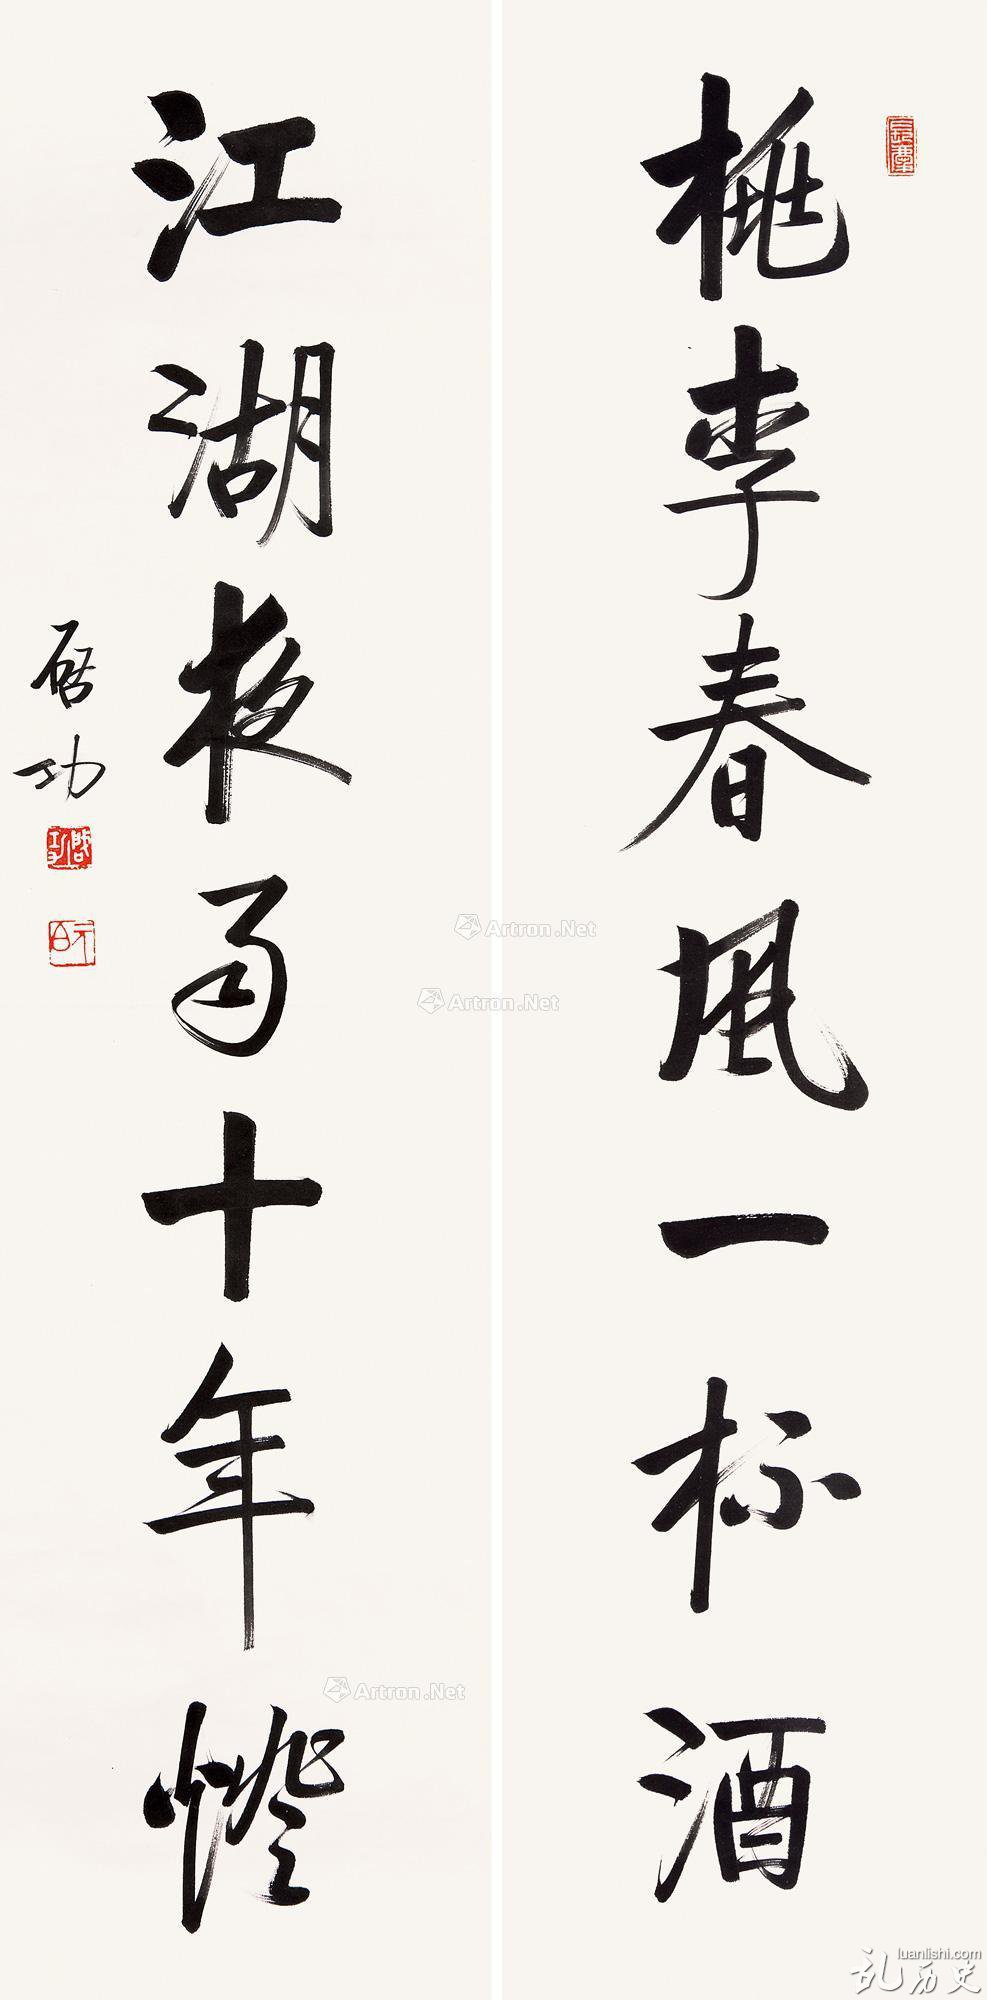 桃李春风一杯酒
江湖夜雨十年燈
启功
启功
元白
Artron.Net
Artron.Net
Artron.Net
luanlishi.com
乱历史